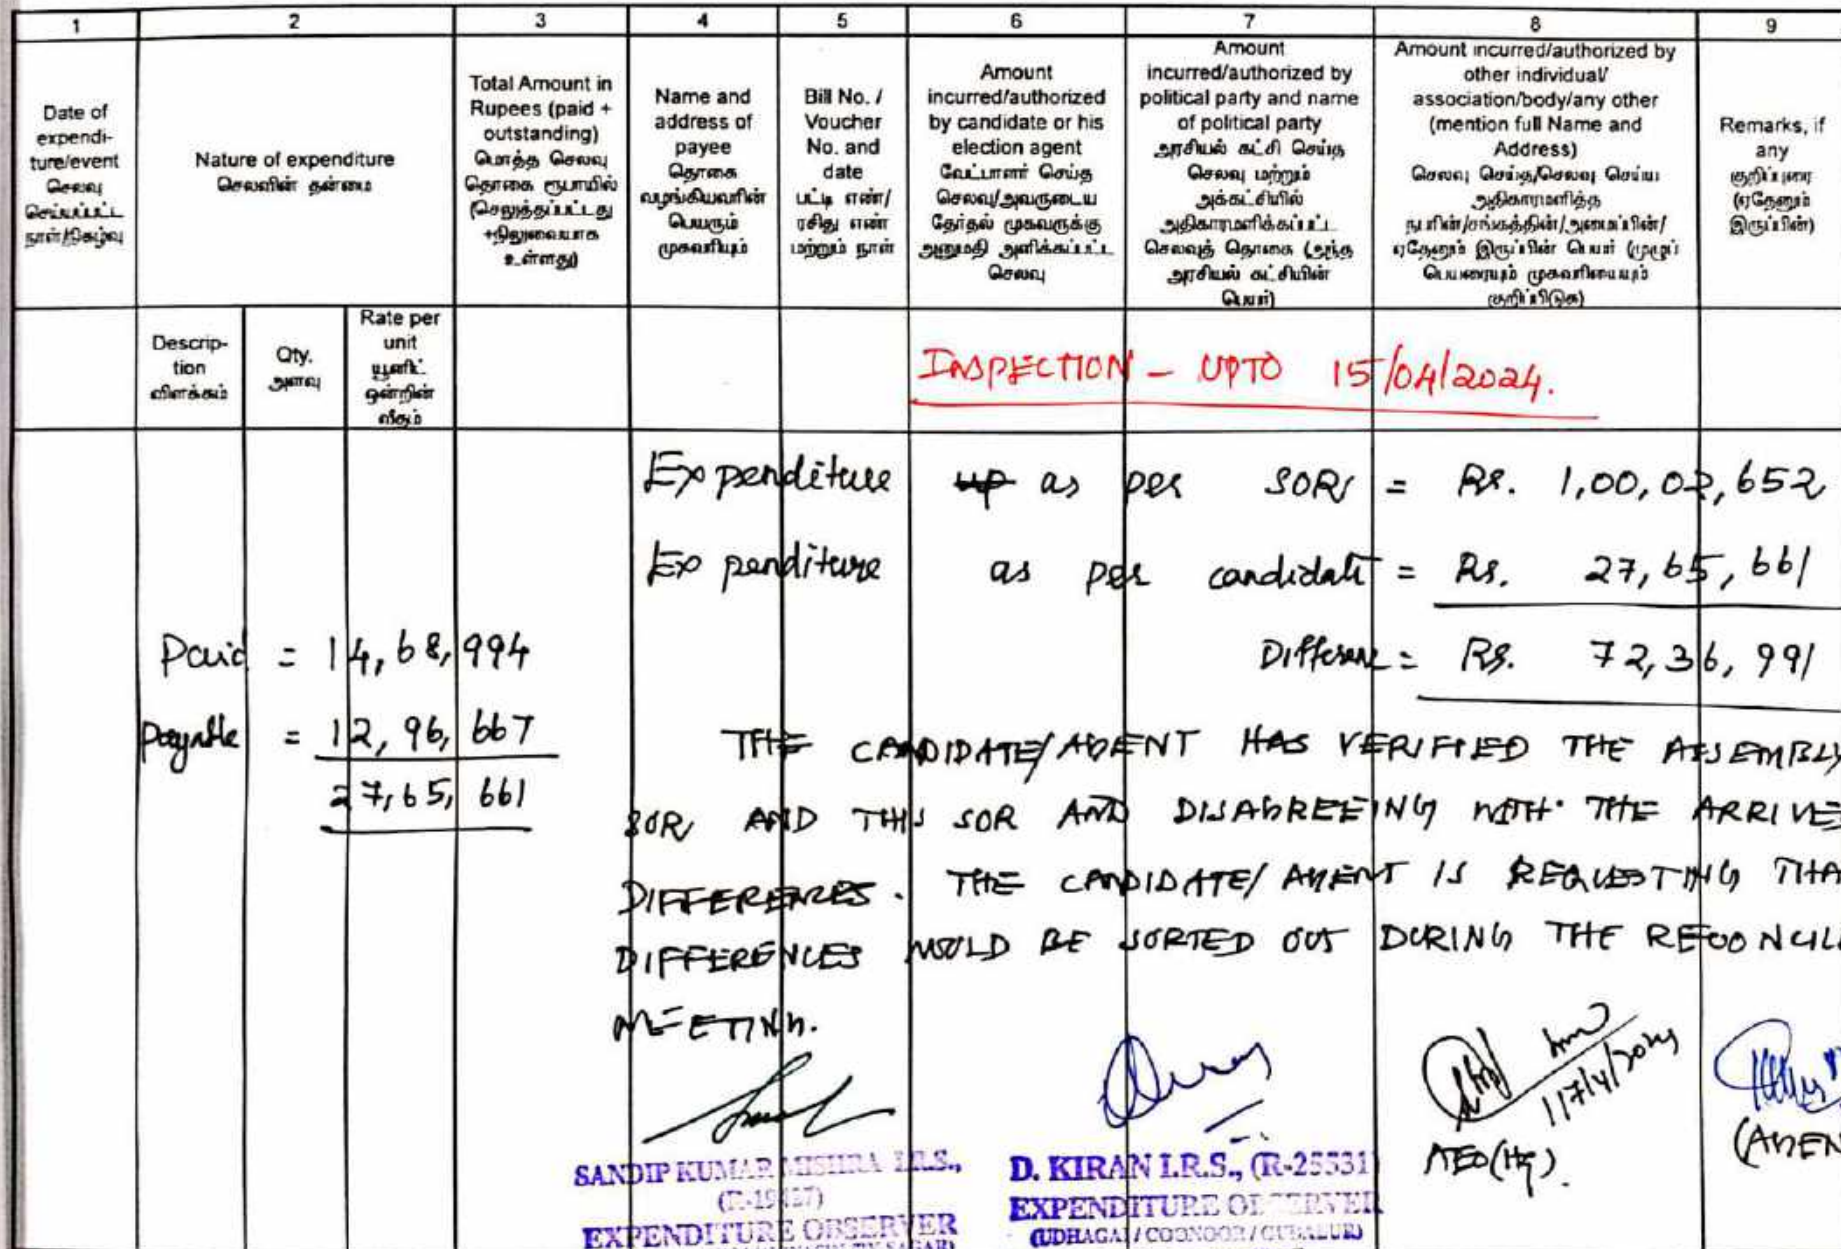 1 2 3 4 5 6 7 8 9
Date of
expendi-
ture/event
செலவு
செய்யப்பட்ட
நாள்/நிகழ்வு
Nature of expenditure
செலவின் தன்மை
Total Amount in
Rupees (paid +
outstanding)
மொத்த செலவு
தொகை ரூபாயில்
(செலுத்தப்பட்டது
+நிலுவையாக
உள்ளது)
Name and
address of
payee
தொகை
வழங்கியவரின்
பெயரும்
முகவரியும்
Bill No. /
Voucher
No. and
date
பட்டி எண்/
ரசிது எண்
மற்றும் நாள்
Amount
incurred/authorized
by candidate or his
election agent
வேட்பாளர் செய்த
செலவு/அவருடைய
தேர்தல் முகவருக்கு
அனுமதி அளிக்கப்பட்ட
செலவு
Amount
incurred/authorized by
political party and name
of political party
அரசியல் கட்சி செய்த
செலவு மற்றும்
அக்கட்சியில்
அதிகாரமளிக்கப்பட்ட
செலவுத் தொகை (அந்த
அரசியல் கட்சியின்
பெயர்)
Amount incurred/authorized by
other individual/
association/body/any other
(mention full Name and
Address)
செலவு செய்த/செலவு செய்ய
அதிகாரமளித்த
நபரின்/சங்கத்தின்/அமைப்பின்/
ஏதேனும் இருப்பின் பெயர் (முழுப்
பெயரையும் முகவரியையும்
குறிப்பிடுக)
Remarks, if
any
குறிப்புரை
(ஏதேனும்
இருப்பின்)
Descrip-
tion
விளக்கம்
Qty.
அளவு
Rate per
unit
யூனிட்
ஒன்றின்
வீதம்
INSPECTION - UPTO 15/04/2024.
Expenditure up as per SOR = Rs. 1,00,02,652
Expenditure as per candidate = Rs. 27,65,661
Difference = Rs. 72,36,991
Paid = 14,68,994
Payable = 12,96,667
27,65,661
THE CANDIDATE/AGENT HAS VERIFIED THE ASSEMBLY
SOR AND THIS SOR AND DISAGREEING WITH THE ARRIVE
DIFFERENCES. THE CANDIDATE/AGENT IS REQUESTING THA
DIFFERENCES WOULD BE SORTED OUT DURING THE RECONCILI
MEETING.
17/4/2024
AEO(Hq).
(AGEN
SANDIP KUMAR MISHRA I.R.S.,
EXPENDITURE OBSERVER
D. KIRAN I.R.S., (R-25531
EXPENDITURE OBSERVER
(UDHAGAI / COONOOR / GUDALUR)